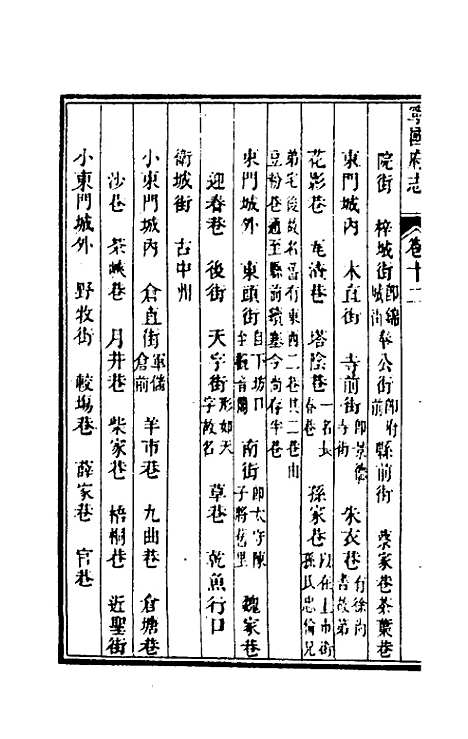 寧國府志 卷十二
院街 梓城街即錦城街 奉公街即府前 縣前街 柴家巷 茶葉巷
東門城內 木直街 寺前街即景德寺街 朱衣巷有徐尚書故第
花影巷 塔陰巷一名長春巷 孫家巷
弟宅後故名舊有東西二巷其一巷由
豆粉巷通至縣前續塞今尚存半巷
東門城外 東頭街自下坊口至觀音閣 南街即太守陳子將舊里 魏家巷
迎春巷 後街 天字街形如天字故名 草巷 乾魚行口
衛城街 古中州
小東門城內 倉直街軍儲倉前 羊市巷 九曲巷 倉塘巷
沙巷 茶峽巷 月井巷 柴家巷 梧桐巷 近聖街
小東門城外 野牧街 較場巷 薛家巷 官巷